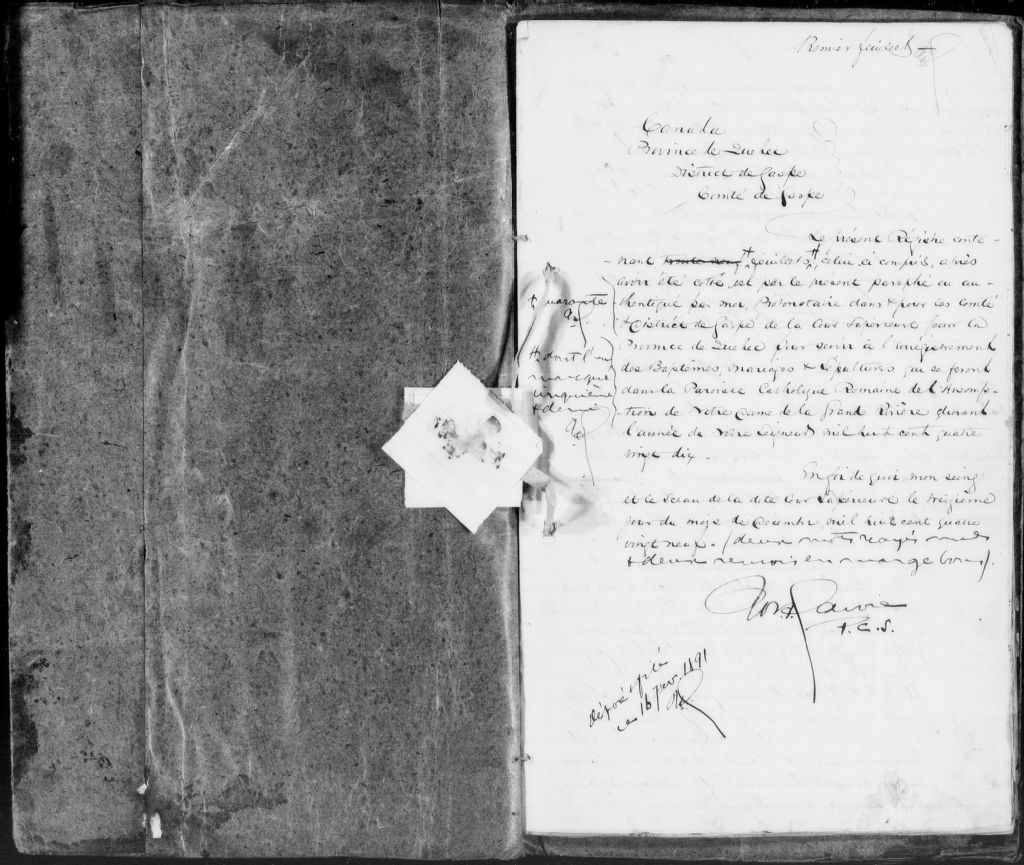 Premier feuillet
Canada
Province de Québec
District de Gaspé
Comté de Gaspé
Le présent Régistre conte-
-nant trente neuf feuillets, celui ci compris, après
avoir été cotés est par le présent paraphé ou au-
-thentiqué par moi, Protonotaire dans & pour les Comté
& District de Gaspé de la Cour Supérieure pour la
Province de Québec pour servir à l'enrégistrement
des Baptêmes, Mariages & Sépultures qui se feront
dans la Paroisse Catholique Romaine de l'Assomp-
-tion de Notre Dame de la Grande Rivière durant
l'année de Notre Seigneur mil huit cent quatre
vingt dix.
quarante
dont l'un
marqué
cinquième
& demi
En foi de quoi mon seing
et le Sceau de la dite Cour Supérieure le treizième
jour du mois de Décembre, mil huit cent quatre
vingt neuf. (deux mots rayés nuls
& deux renvois en marge bons).
P.C.S.
déposé & filé
ce 16 Janv. 1891